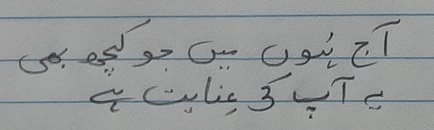 آج ہُوں میں جو کچھ بھی
یے آپ کی عِنایت ہے